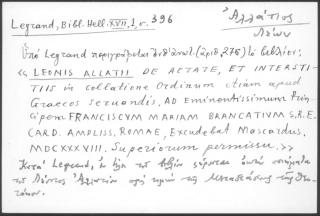 Legrand, Bibl. Hell. XVII, 1, σ. 396
Ἀλλάτιος
Λέων
Ὑπὸ Legrand περιγράφεται (ἀριθ. 275) τὸ βιβλίον:
« LEONIS ALLATII DE AETATE, ET INTERSTI-
TIIS in collatione Ordinum etiam apud
Graecos seruandis. AD Eminentissimum Prin-
cipem FRANCISCVM MARIAM BRANCATIVM S.R.E.
CARD. AMPLISS. ROMAE, Excudebat Mascardus.
MDCXXXVIII. Superiorum permissu. »
Κατὰ Legrand, ἐν τέλει τοῦ βιβλίου
τοῦ Λέοντος Ἀλλατίου τῆς